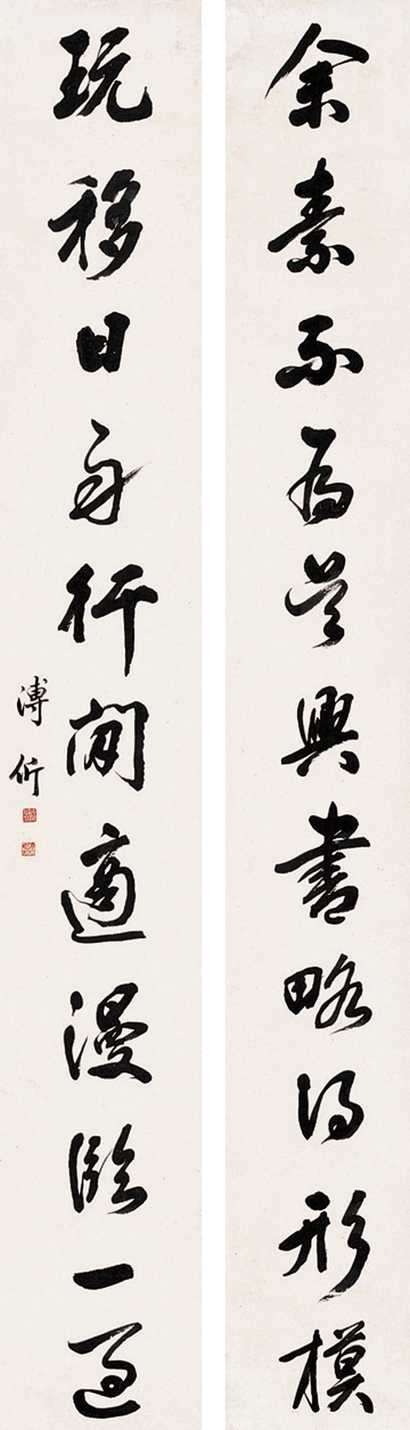 余素不為吳興書略得形模
玩移日舟行閒適漫臨一過
溥伒